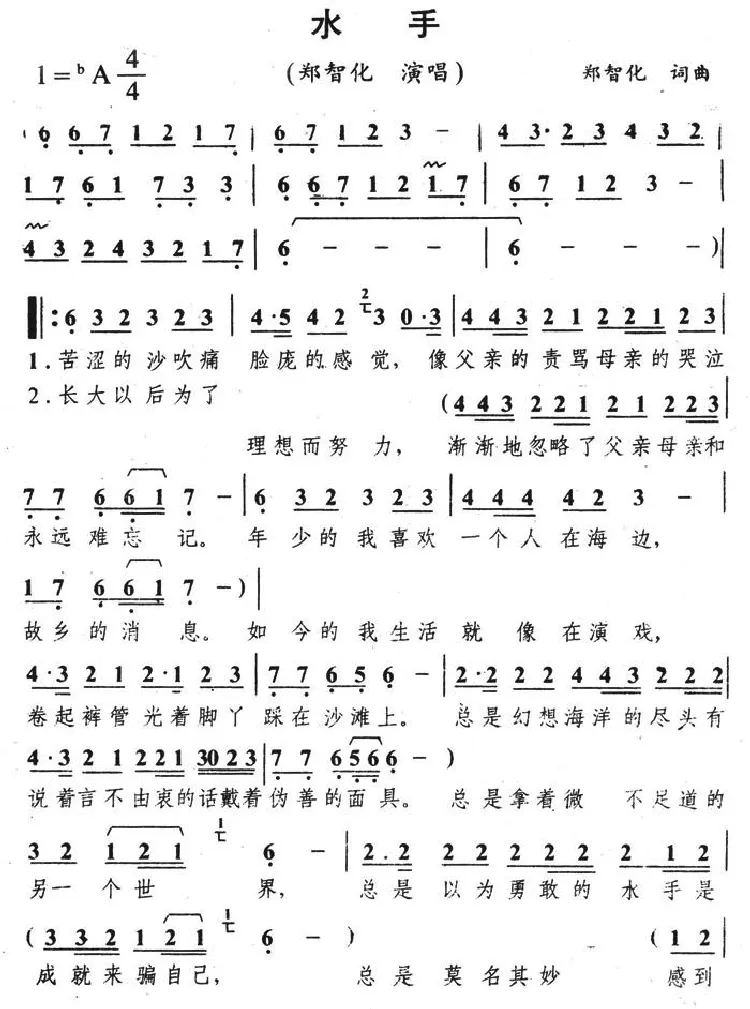 水 手
1=ᵇA 4/4 (郑智化 演唱) 郑智化 词曲
(6 6 7 1 2 1 7 | 6 7 1 2 3 - | 4 3· 2 3 4 3 2 |
1 7 6 1 7 3 3 | 6 6 7 1 2 1 7 | 6 7 1 2 3 - |
4 3 2 4 3 2 1 7 | 6 - - - | 6 - - -)|
|: 6 3 2 3 2 3 | 4·5 4 2 2 3 0·3 | 4 4 3 2 1 2 2 1 2 3
1.苦涩的沙吹痛 脸庞的感觉, 像父亲的责骂母亲的哭泣
2.长大以后为了 (4 4 3 2 2 1 2 1 2 2 3
理想而努力, 渐渐地忽略了父亲母亲和
7 7 6 6 1 7 - | 6 3 2 3 2 3 | 4 4 4 4 2 3 - |
永远难忘记。 年少的我喜欢 一个人在海边,
1 7 6 6 1 7 -)|
故乡的消息。 如今的我生活就像在演戏,
4·3 2 1 2·1 2 3 | 7 7 6 5 6 - | 2·2 2 2 4 4 3 2 2 2
卷起裤管光着脚丫 踩在沙滩上。 总是幻想海洋的尽头有
4·3 2 1 2 2 1 3 0 2 3 | 7 7 6 5 6 6 -)
说着言不由衷的话戴着伪善的面具。 总是拿着微不足道的
3 2 1 2 1 1 6 - | 2.2 2 2 2 2 2 2 1 2 |
另一个世界, 总是以为勇敢的水手是
(3 3 2 2 1 2 1 1 6 -) (1 2
成就来骗自己, 总是莫名其妙 感到